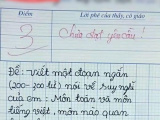 Điểm
Lời phê của thầy, cô giáo
3
Chưa đạt yêu cầu!
Đề: Viết một đoạn ngắn
(200-300 từ) nói về suy nghĩ
của em: Môn toán và môn
tiếng việt, môn nào quan